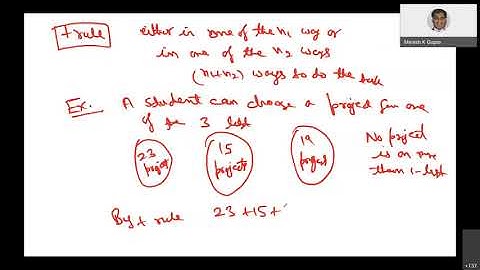 + rule
either in one of the n1 way or
in one of the n2 ways
(n1+n2) ways to do the task
Ex. A student can choose a project from one
of the 3 list
23 project
15 projects
19 project
No project
is on more
than 1-list
By + rule 23 +15+